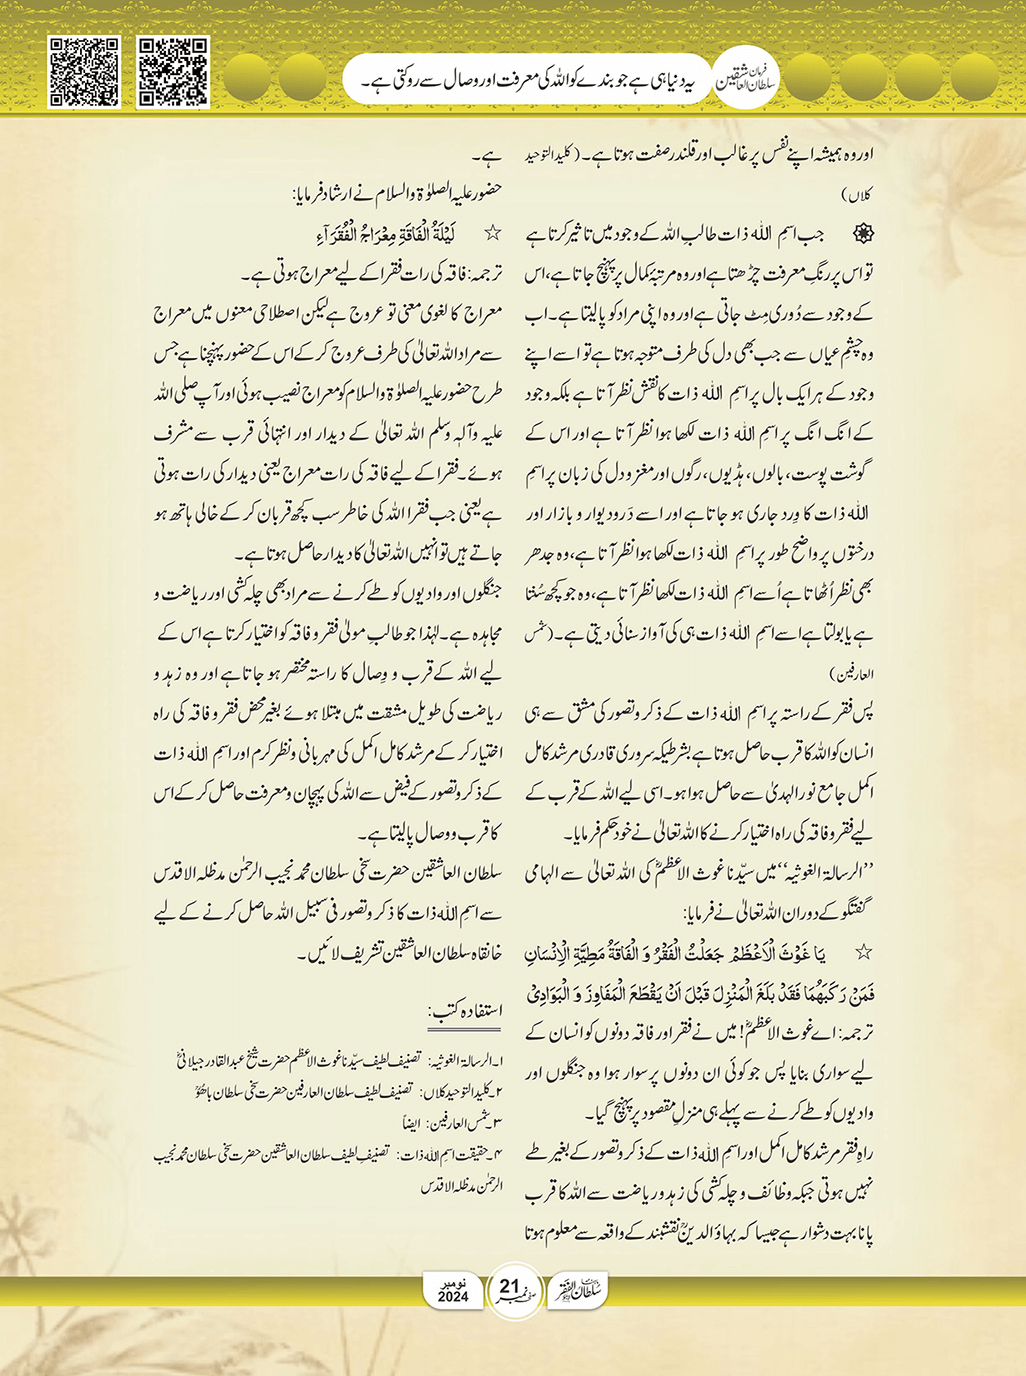 فرمان سلطان العاشقین
یہ دنیا ہی ہے جو بندے کو اللہ کی معرفت اور وصال سے روکتی ہے۔
اور وہ ہمیشہ اپنے نفس پر غالب اور قلندر صفت ہوتا ہے۔ (کلید التوحید
کلاں)
جب اسمِ اللہ ذات طالبِ اللہ کے وجود میں تاثیر کرتا ہے
تو اس پر رنگِ معرفت چڑھتا ہے اور وہ مرتبۂ کمال پر پہنچ جاتا ہے، اس
کے وجود سے دُوری مِٹ جاتی ہے اور وہ اپنی مراد کو پا لیتا ہے۔ اب
وہ چشمِ عیاں سے جب بھی دل کی طرف متوجہ ہوتا ہے تو اسے اپنے
وجود کے ہر ایک بال پر اسمِ اللہ ذات کا نقش نظر آتا ہے بلکہ وجود
کے انگ انگ پر اسمِ اللہ ذات لکھا ہوا نظر آتا ہے اور اس کے
گوشت پوست، بالوں، ہڈیوں، رگوں اور مغز و دل کی زبان پر اسمِ
اللہ ذات کا وِرد جاری ہو جاتا ہے اور اسے دَر و دیوار و بازار اور
درختوں پر واضح طور پر اسمِ اللہ ذات لکھا ہوا نظر آتا ہے، وہ جدھر
بھی نظر اُٹھاتا ہے اُسے اسمِ اللہ ذات لکھا نظر آتا ہے، وہ جو کچھ سُنتا
ہے یا بولتا ہے اسے اسمِ اللہ ذات ہی کی آواز سنائی دیتی ہے۔ (شمس
العارفین)
پس فقر کے راستہ پر اسمِ اللہ ذات کے ذکر و تصور کی مشق سے ہی
انسان کو اللہ کا قرب حاصل ہوتا ہے بشرطیکہ سروری قادری مرشد کامل
اکمل جامع نور الہدیٰ سے حاصل ہوا ہو۔ اسی لیے اللہ کے قرب کے
لیے فقر و فاقہ کی راہ اختیار کرنے کا اللہ تعالیٰ نے خود حکم فرمایا۔
’’الرسالۃ الغوثیہ‘‘ میں سیّدنا غوث الاعظمؓ کی اللہ تعالیٰ سے الہامی
گفتگو کے دوران اللہ تعالیٰ نے فرمایا:
☆ یَا غَوْثَ الْاَعْظَمْ جَعَلْتُ الْفَقْرُ وَ الْفَاقَۃُ مَطِیَّۃِ الْاِنْسَانِ
فَمَنْ رَکَبَھُمَا فَقَدْ بَلَغَ الْمَنْزِلَ قَبْلَ اَنْ یَقْطَعَ الْمَفَاوِزَ وَ الْبَوَادِیْ
ترجمہ: اے غوث الاعظمؓ! میں نے فقر اور فاقہ دونوں کو انسان کے
لیے سواری بنایا پس جو کوئی ان دونوں پر سوار ہوا وہ جنگلوں اور
وادیوں کو طے کرنے سے پہلے ہی منزلِ مقصود پر پہنچ گیا۔
راہِ فقر مرشد کامل اکمل اور اسمِ اللہ ذات کے ذکر و تصور کے بغیر طے
نہیں ہوتی جبکہ وظائف و چلہ کشی کی زہد و ریاضت سے اللہ کا قرب
پانا بہت دشوار ہے جیسا کہ بہاؤ الدینؒ نقشبند کے واقعہ سے معلوم ہوتا
ہے۔
حضور علیہ الصلوٰۃ والسلام نے ارشاد فرمایا:
☆ لَیْلَۃُ الْفَاقَۃِ مِعْرَاجُ الْفُقَرَآءِ
ترجمہ: فاقہ کی رات فقرا کے لیے معراج ہوتی ہے۔
معراج کا لغوی معنی تو عروج ہے لیکن اصطلاحی معنوں میں معراج
سے مراد اللہ تعالیٰ کی طرف عروج کر کے اس کے حضور پہنچنا ہے جس
طرح حضور علیہ الصلوٰۃ والسلام کو معراج نصیب ہوئی اور آپ صلی اللہ
علیہ وآلہٖ وسلم اللہ تعالیٰ کے دیدار اور انتہائی قرب سے مشرف
ہوئے۔ فقرا کے لیے فاقہ کی رات معراج یعنی دیدار کی رات ہوتی
ہے یعنی جب فقرا اللہ کی خاطر سب کچھ قربان کر کے خالی ہاتھ ہو
جاتے ہیں تو انہیں اللہ تعالیٰ کا دیدار حاصل ہوتا ہے۔
جنگلوں اور وادیوں کو طے کرنے سے مراد بھی چلہ کشی اور ریاضت و
مجاہدہ ہے۔ لہٰذا جو طالبِ مولیٰ فقر و فاقہ کو اختیار کرتا ہے اس کے
لیے اللہ کے قرب و وِصال کا راستہ مختصر ہو جاتا ہے اور وہ زہد و
ریاضت کی طویل مشقت میں مبتلا ہوئے بغیر محض فقر و فاقہ کی راہ
اختیار کر کے مرشد کامل اکمل کی مہربانی و نظرِ کرم اور اسمِ اللہ ذات
کے ذکر و تصور کے فیض سے اللہ کی پہچان و معرفت حاصل کر کے اس
کا قرب و وصال پا لیتا ہے۔
سلطان العاشقین حضرت سخی سلطان محمد نجیب الرحمٰن مدظلہ الاقدس
سے اسمِ اللہ ذات کا ذکر و تصور فی سبیل اللہ حاصل کرنے کے لیے
خانقاہ سلطان العاشقین تشریف لائیں۔
استفادہ کتب:
۱۔الرسالۃ الغوثیہ: تصنیفِ لطیف سیّدنا غوث الاعظم حضرت شیخ عبدالقادر جیلانیؓ
۲۔کلید التوحید کلاں: تصنیفِ لطیف سلطان العارفین حضرت سخی سلطان باھُوؒ
۳۔شمس العارفین: ایضاً
۴۔حقیقت اسمِ اللہ ذات: تصنیفِ لطیف سلطان العاشقین حضرت سخی سلطان محمد نجیب
الرحمٰن مدظلہ الاقدس
سلطان الفقر
صفحہ نمبر 21
نومبر 2024